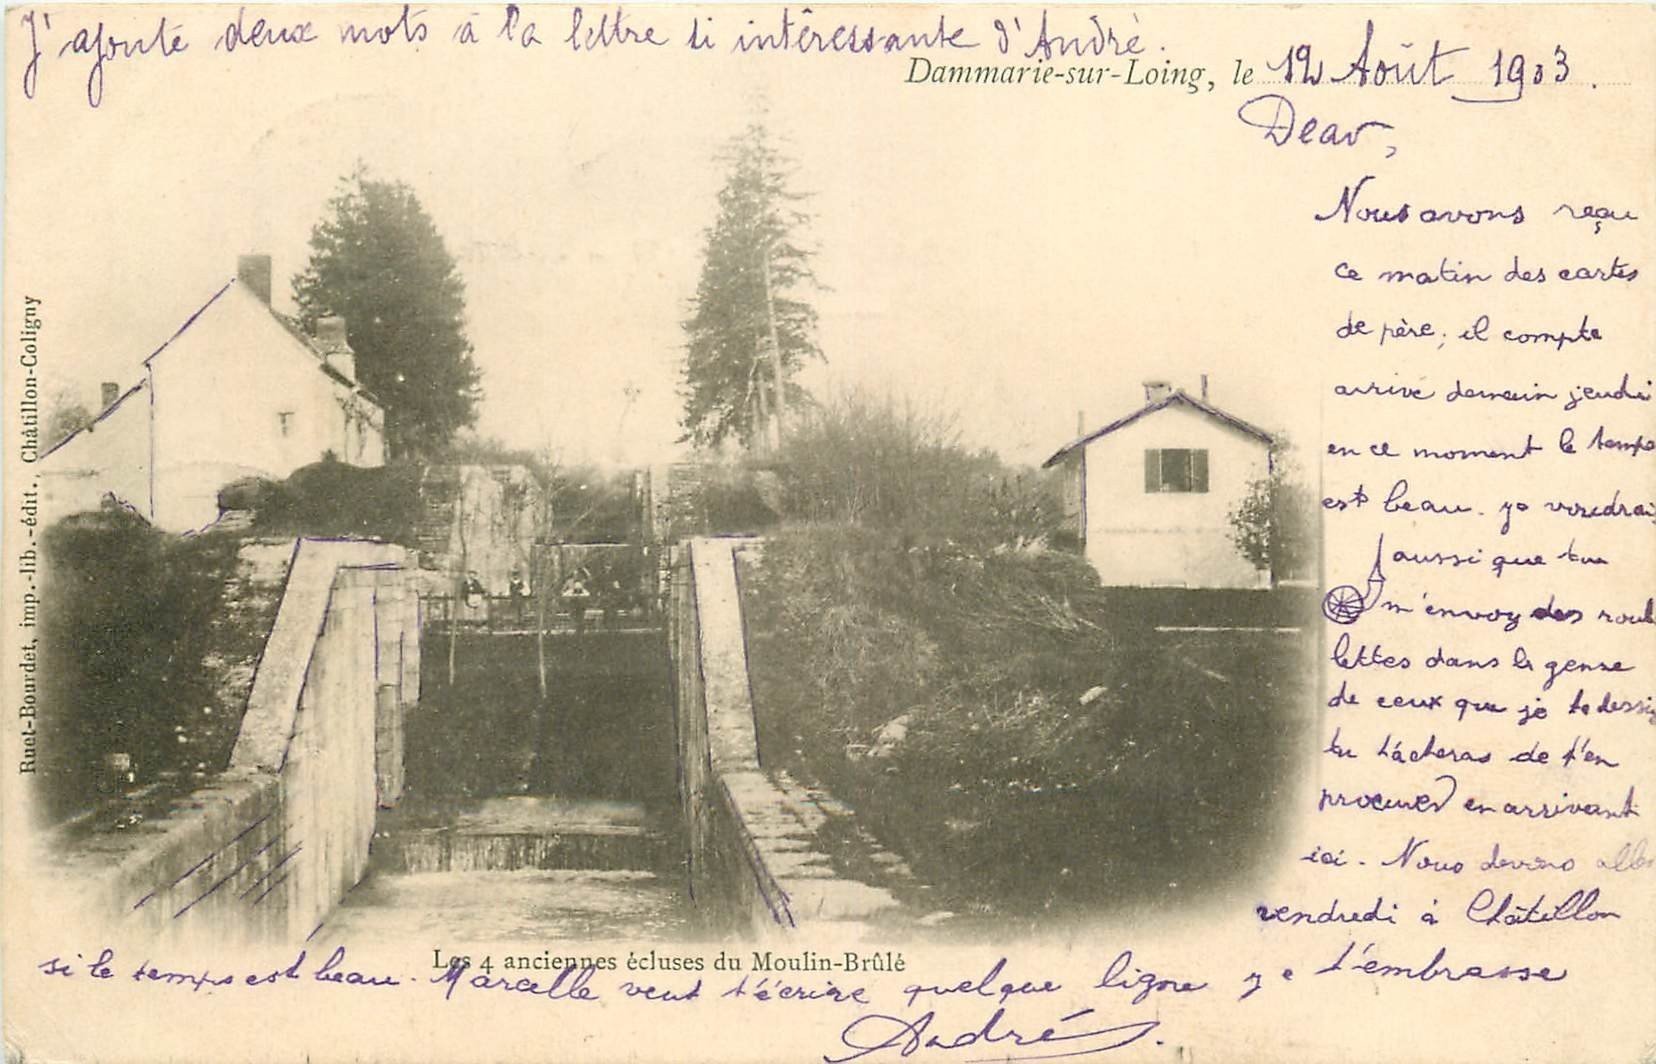 J'ajoute deux mots à la lettre si intéressante d'André.
Dammarie-sur-Loing, le 12 Août 1903.
Dear,
Nous avons reçu
ce matin des cartes
de père; il compte
arrivé demain jeudi
en ce moment le temps
est beau. je voudrais
aussi que tu
m'envoy des roul
lettes dans le genre
de ceux que je te dessi
tu tâcheras de t'en
procurer en arrivant
ici. Nous devons aller
vendredi à Châtillon
si le temps est beau. Marcelle veut t'écrire quelque ligne je t'embrasse
André.
Les 4 anciennes écluses du Moulin-Brûlé
Ruet-Bourdet, imp.-lib.-édit., Châtillon-Coligny